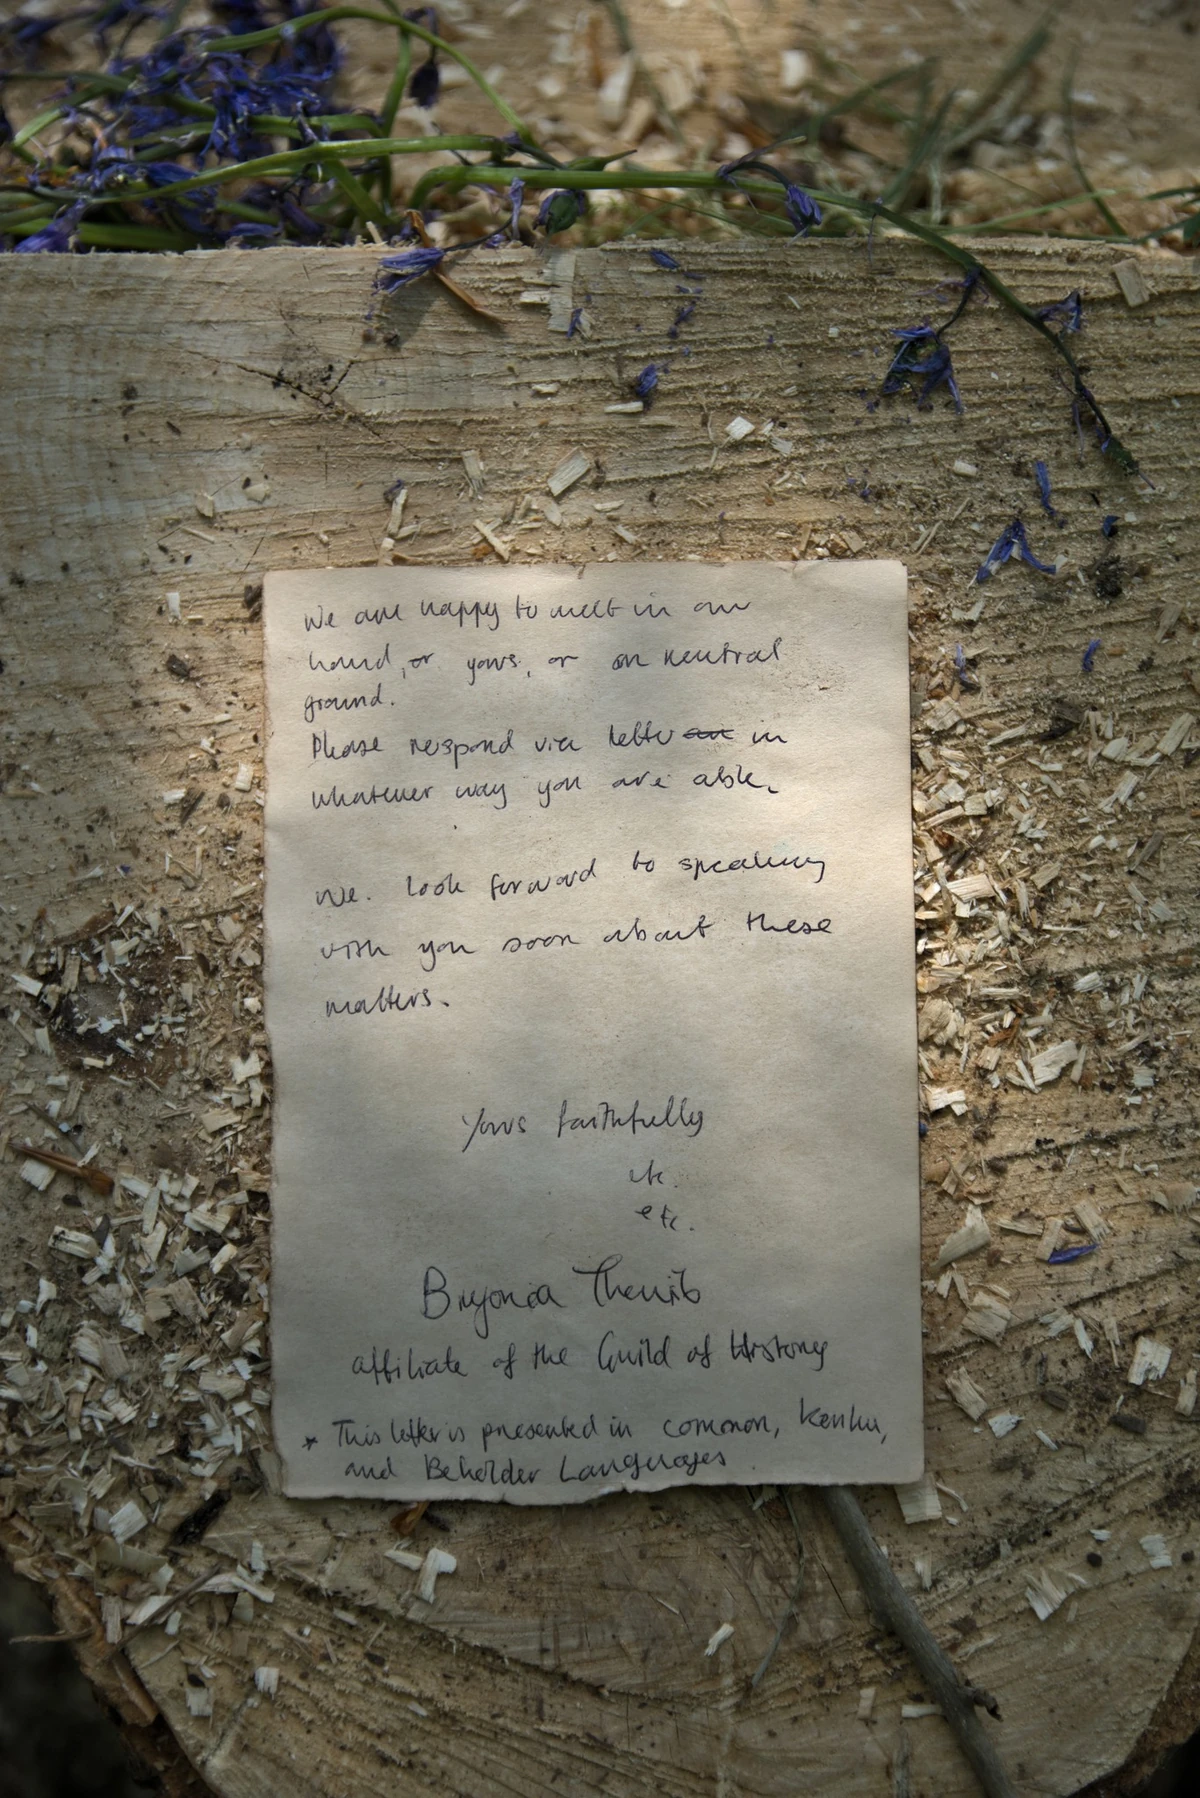 We are happy to meet in our
hand, or yours, or on neutral
ground.
Please respond via letter in
whatever way you are able.
We. look forward to speaking
with you soon about these
matters.
Yours faithfully
etc.
etc.
Bryonia
affiliate of the Guild of History
* This letter is presented in common, Kenku,
and Beholder Languages